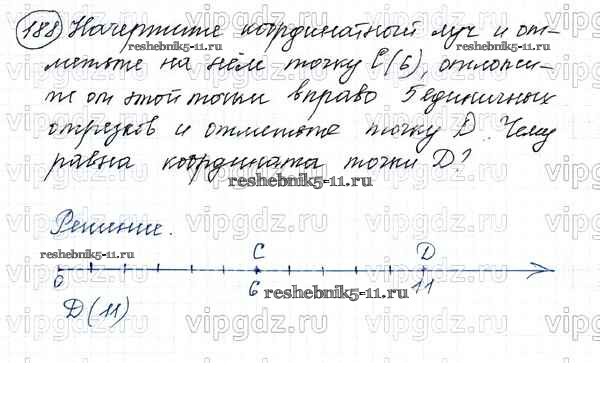 188 Начертите координатный луч и от-
reshebnik5-11.ru
метьте на нём точку C(6), отложи-
те от этой точки вправо 5 единичных
отрезков и отметьте точку D. Чему
равна координата точки D?
reshebnik5-11.ru
Решение.
reshebnik5-11.ru
C D
0 6 11
reshebnik5-11.ru
D(11)
vipgdz.ru